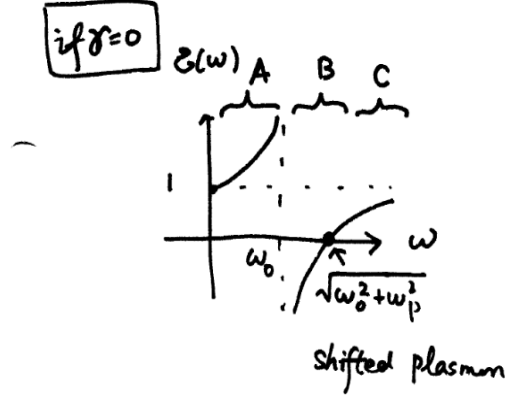 if γ=0
ε(ω) A B C
1
ω
ω₀
√ω₀²+ωₚ²
shifted plasmon